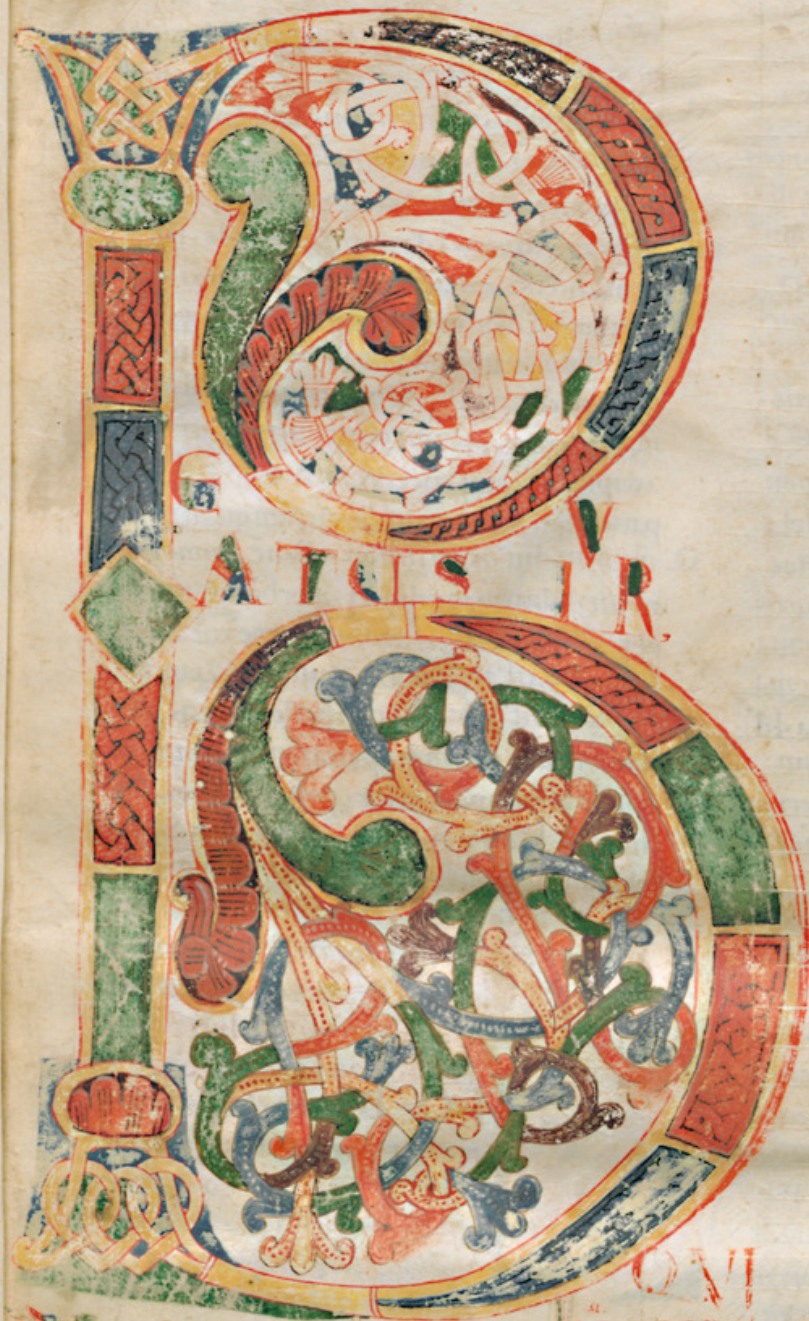 B
E
ATUS VIR,
QVI